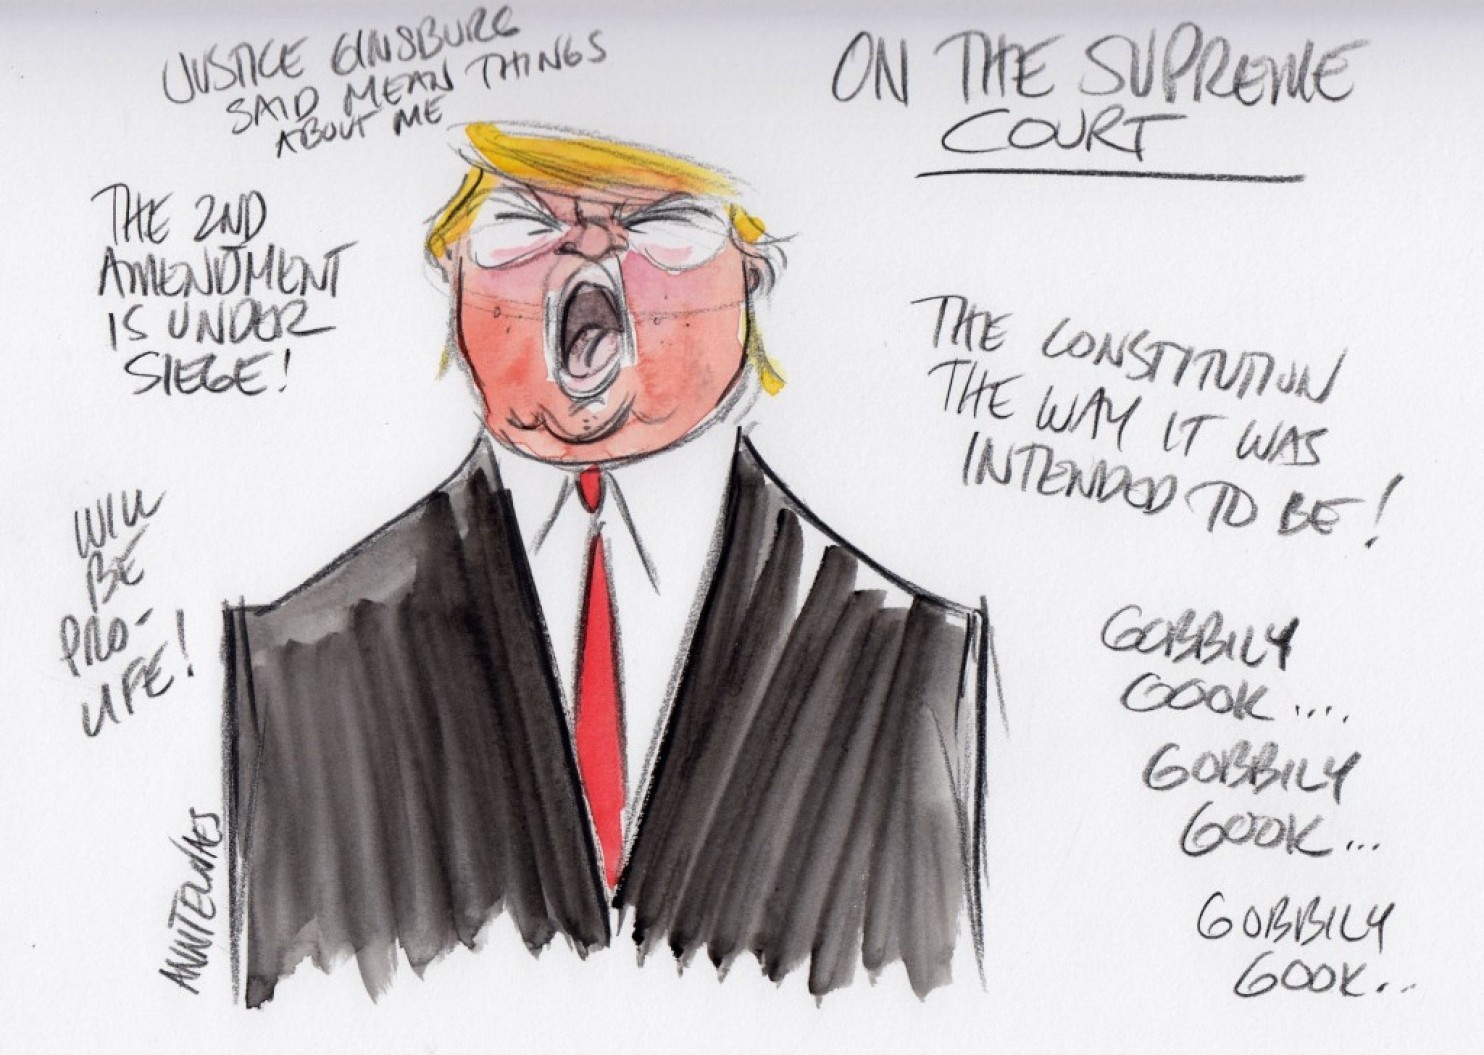 JUSTICE GINSBURG
SAID MEAN THINGS
ABOUT ME
ON THE SUPREME
COURT
THE 2ND
AMENDMENT
IS UNDER
SIEGE!
THE CONSTITUTION
THE WAY IT WAS
INTENDED TO BE!
WILL
BE
PRO-
LIFE!
GOBBILY
GOOK....
GOBBILY
GOOK...
GOBBILY
GOOK...
ANNTELNAES